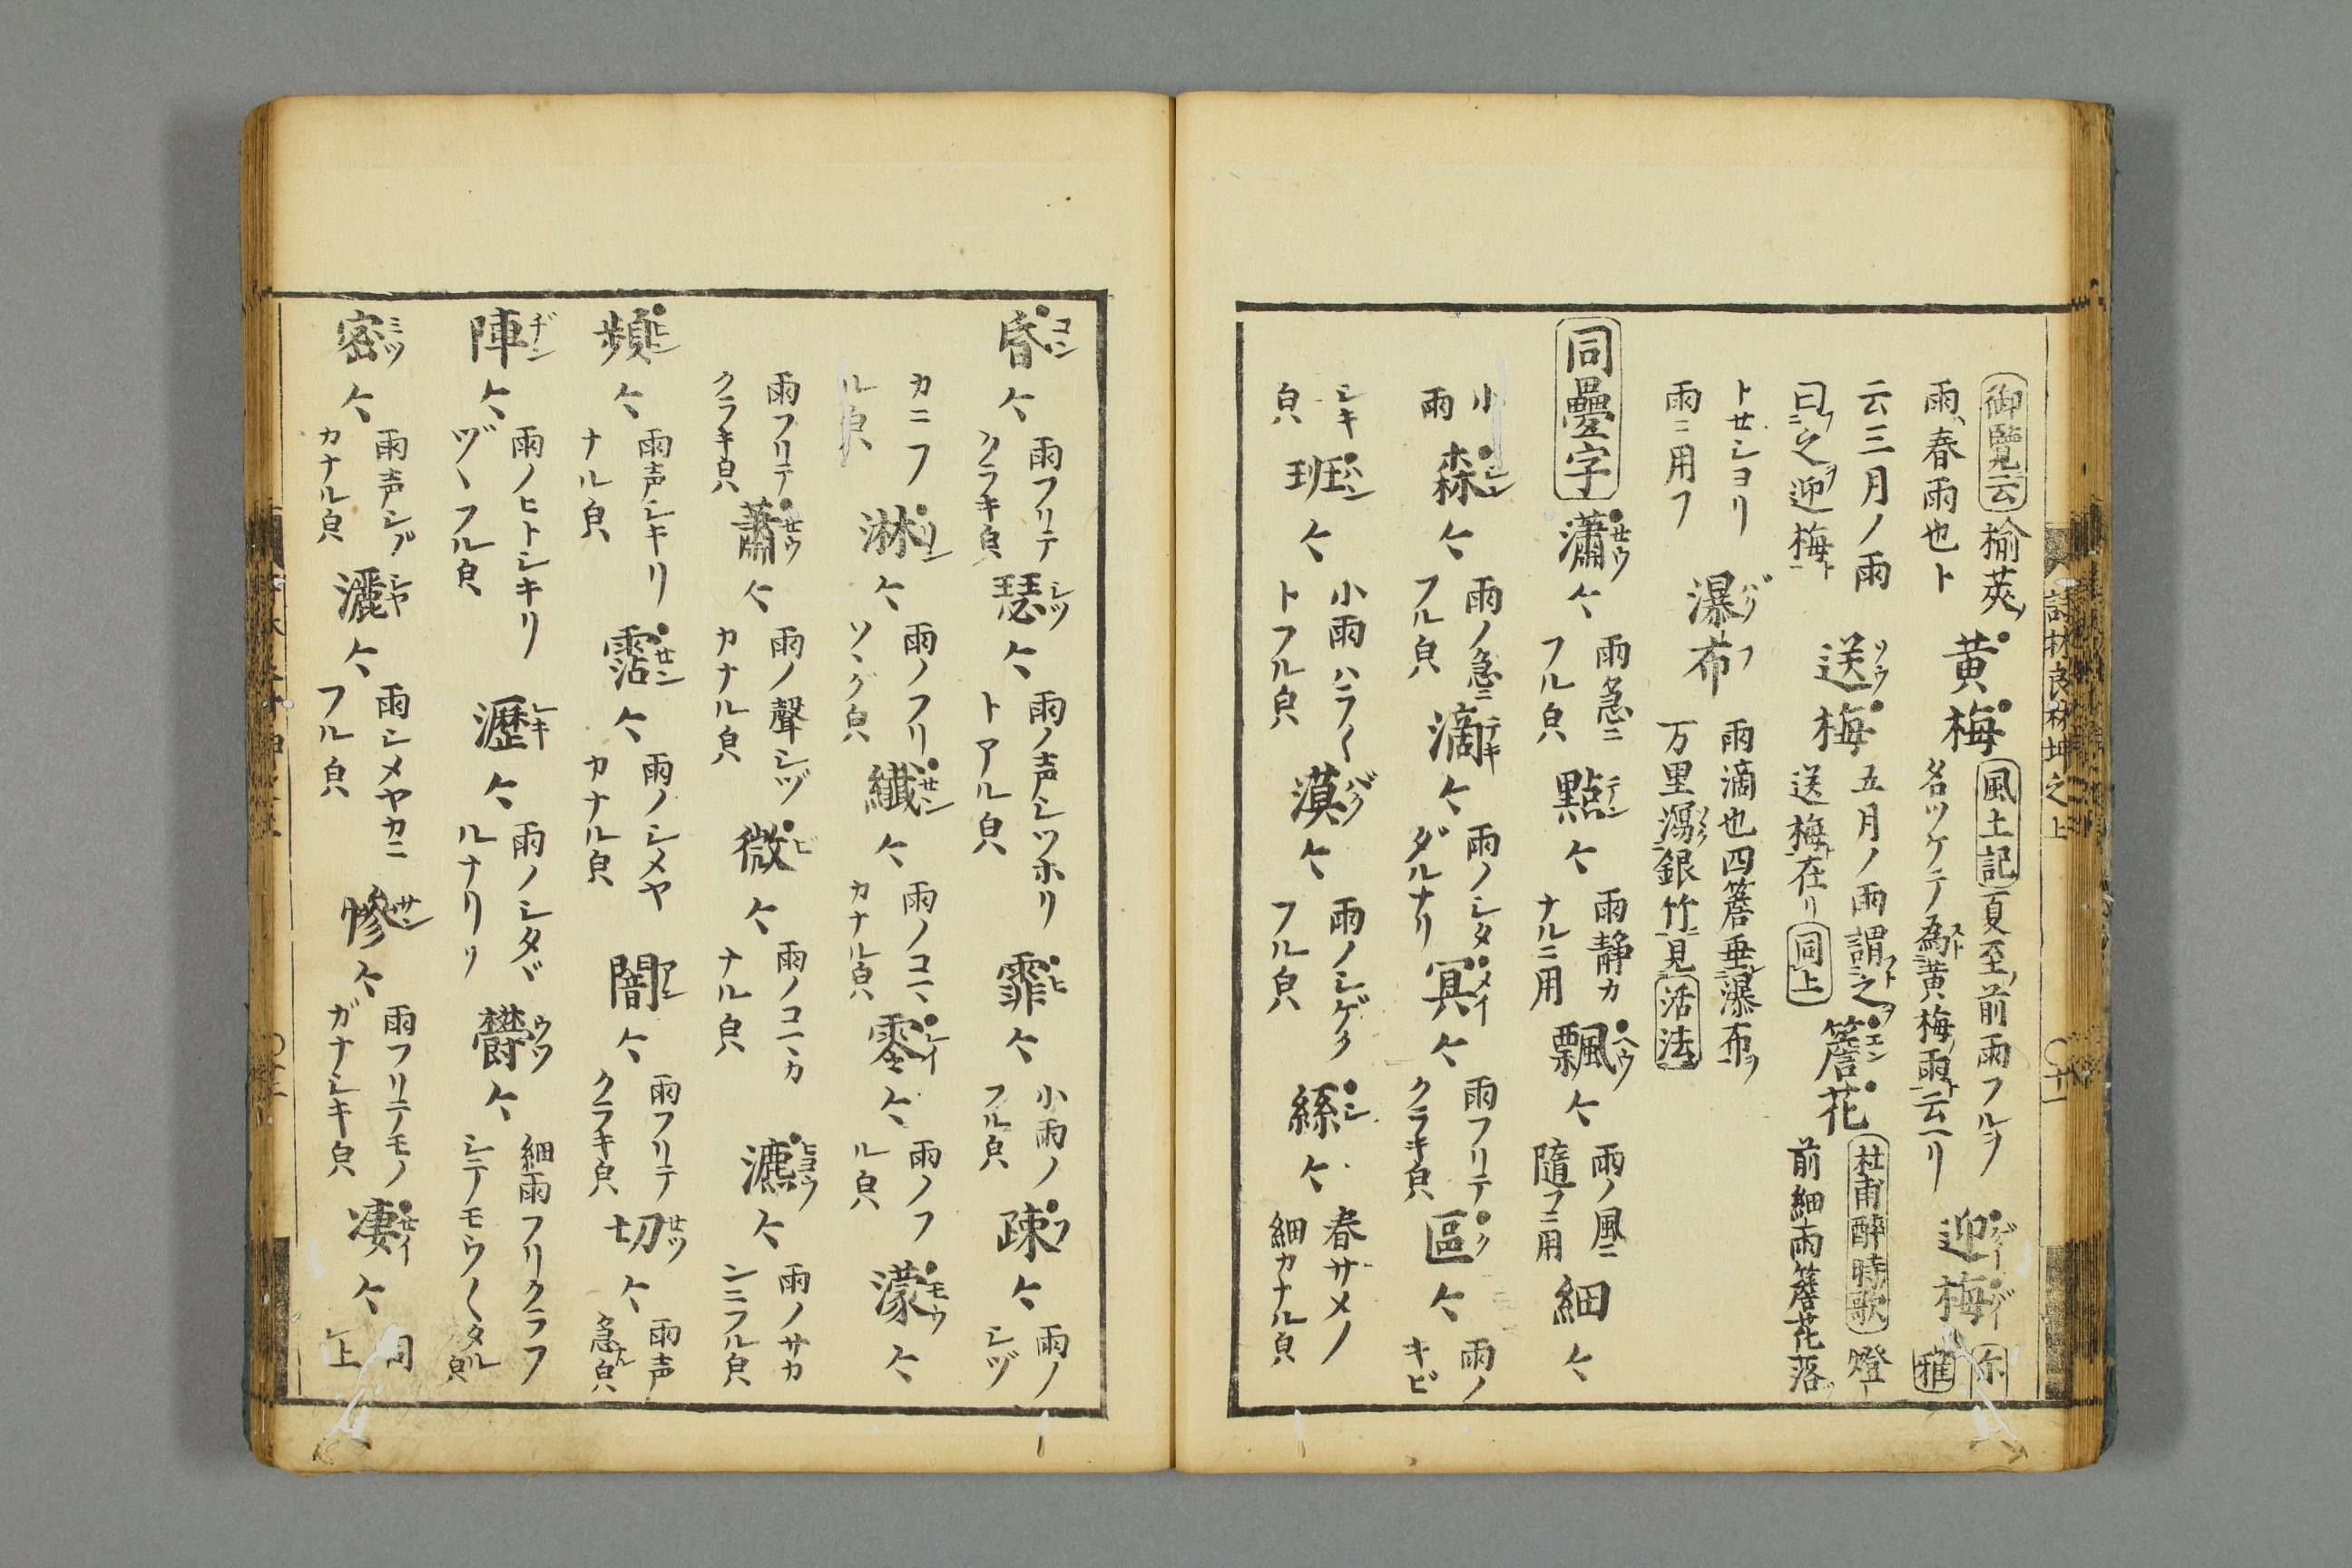 御覽云 榆莢ノ
雨ハ春雨也ト
黄梅
風土記 夏至ノ前雨フルヲ
名ツケテ為スト黄梅ノ雨ト云ヘリ
迎梅 ゲイバイ
尓雅
云三月ノ雨
曰フ之ヲ迎梅ト
送梅 ソウ
五月ノ雨謂フト之ヲ
送梅ト在リ 同上
簷花 エン
杜甫醉時歌 燈
前細雨簷花落ツ
トせシヨリ
雨ニ用フ
瀑布 バクフ
雨滴也四簷垂瀑布ヲ
万里瀉銀竹ヲ見 活法
同疊字
瀟々 せウ
雨急ニ
フル皃
點々 テン
雨静カ
ナルニ用
飄々 ヘウ
雨ノ風ニ
隨フニ用
細々
小
雨
森々 シン
雨ノ急ニ
フル皃
滴々 テキ
雨ノシタ
ダルナリ
冥々 メイ
雨フリテ
クラキ皃
區々 ク
雨ノ
キビ
シキ
皃
班々 ハン
小雨ハラ〱
トフル皃
漠々 バク
雨ノシゲク
フル皃
絲々 シ
春サメノ
細カナル皃
詩林良材坤之上
〇十一
昏々 コン
雨フリテ
クラキ皃
瑟々 シツ
雨ノ声シツホリ
トアル皃
霏々 ヒ
小雨ノ
フル皃
疎々 ソ
雨ノ
シヅ
カニフ
ル皃
淋々 リン
雨ノフリ
ソヽグ皃
纎々 せン
雨ノコマ
カナル皃
零々 レイ
雨ノフ
ル皃
濛々 モウ
雨フリテ
クラキ皃
蕭々 せウ
雨ノ聲シヅ
カナル皃
微々 ビ
雨ノコマカ
ナル皃
瀌々 ヒヨウ
雨ノサカ
ンニフル皃
頻々 ヒン
雨声シキリ
ナル皃
霑々 せン
雨ノシメヤ
カナル皃
闇々 アン
雨フリテ
クラキ皃
切々 せツ
雨声
急ナル皃
陣々 ヂン
雨ノヒトシキリ
ヅヽフル皃
瀝々 レキ
雨ノシタヾ
ルナリ
欝々 ウツ
細雨フリクラフ
シテモウ〱タル皃
密々 ミツ
雨声シゲ
カナル皃
灑々 シヤ
雨シメヤカニ
フル皃
惨々 サン
雨フリテモノ
ガナシキ皃
凄々 せイ
同
上